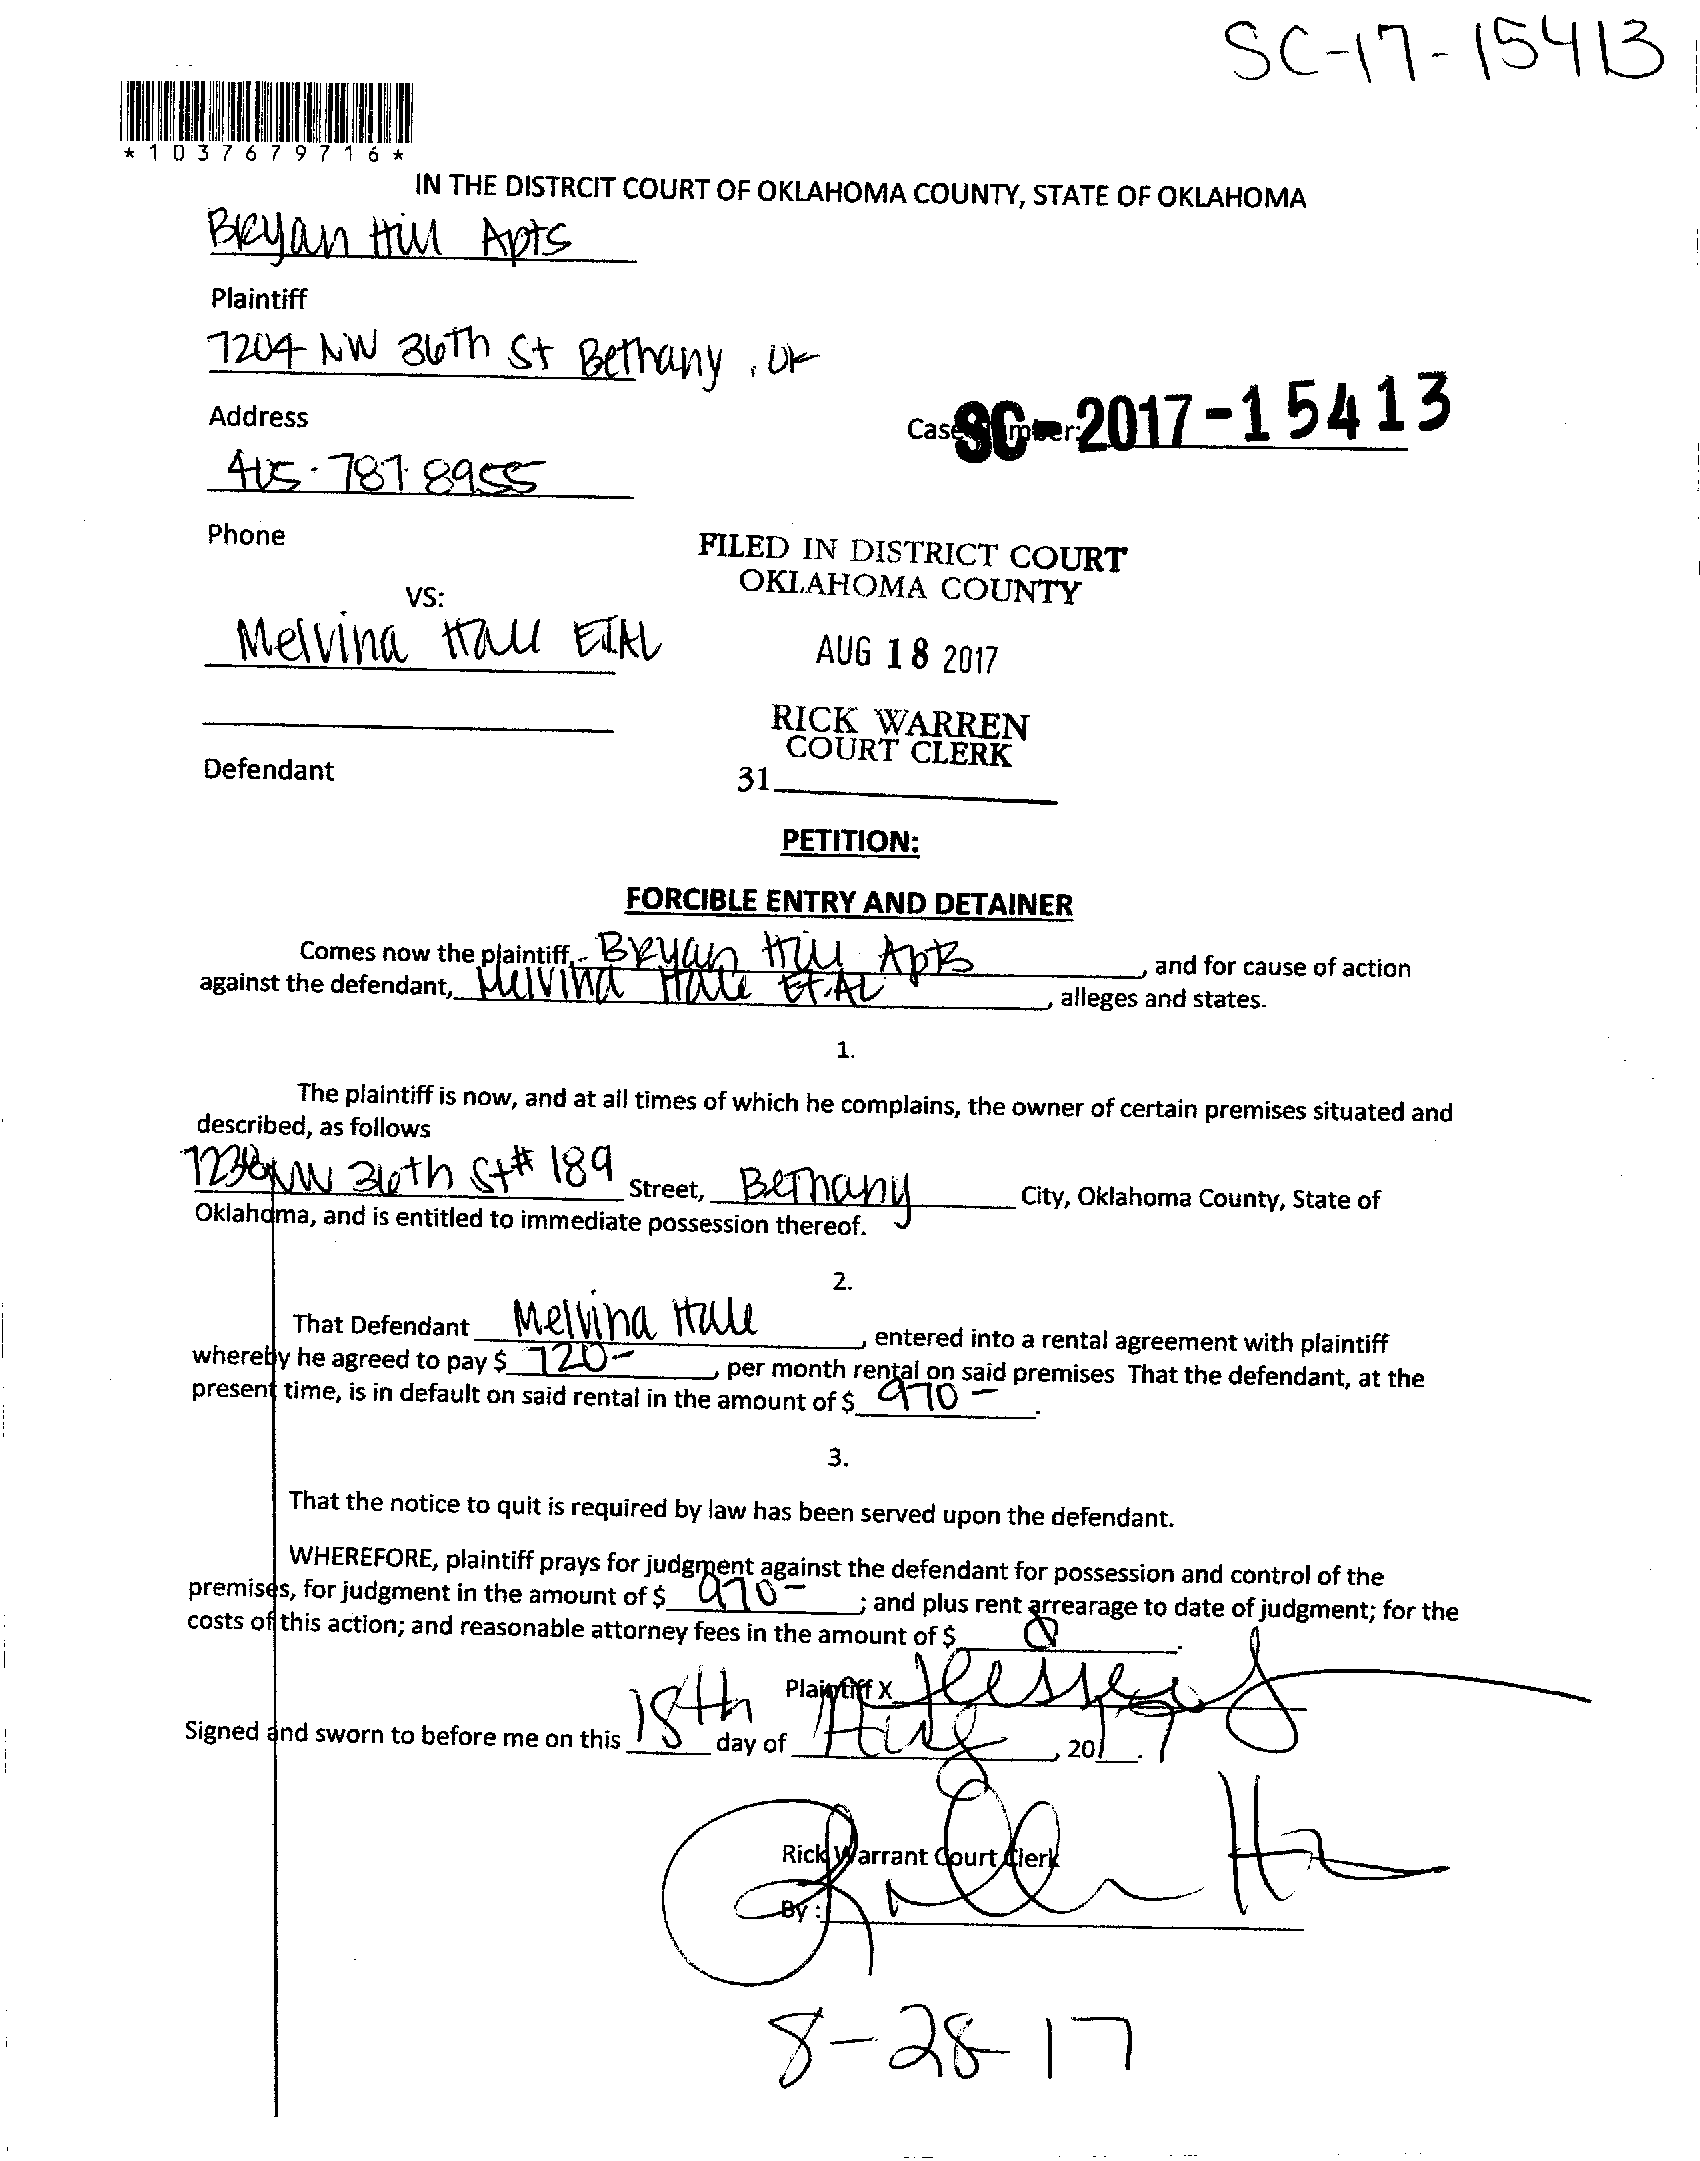 SC-17-15413
*1037679716*
IN THE DISTRCIT COURT OF OKLAHOMA COUNTY, STATE OF OKLAHOMA
Bryan Hill Apts
Plaintiff
7204 NW 36th St Bethany, OK
Address
Case Number: SC-2017-15413
405-787-8955
Phone
FILED IN DISTRICT COURT
OKLAHOMA COUNTY
VS:
Melvina Hall ETAL
AUG 18 2017
RICK WARREN
COURT CLERK
Defendant
31
PETITION:
FORCIBLE ENTRY AND DETAINER
Comes now the plaintiff, Bryan Hill Apts, and for cause of action
against the defendant, Melvina Hall Et.AL, alleges and states.
1.
The plaintiff is now, and at all times of which he complains, the owner of certain premises situated and
described, as follows
NW 36th St # 189 Street, Bethany City, Oklahoma County, State of
Oklahoma, and is entitled to immediate possession thereof.
2.
That Defendant Melvina Hall, entered into a rental agreement with plaintiff
whereby he agreed to pay $ 720-, per month rental on said premises That the defendant, at the
present time, is in default on said rental in the amount of $ 970-.
3.
That the notice to quit is required by law has been served upon the defendant.
WHEREFORE, plaintiff prays for judgment against the defendant for possession and control of the
premises, for judgment in the amount of $ 970-; and plus rent arrearage to date of judgment; for the
costs of this action; and reasonable attorney fees in the amount of $ 0.
Plaintiff X
Signed and sworn to before me on this 18th day of Aug, 2017.
Rick Warrant Court Clerk
By:
8-28-17